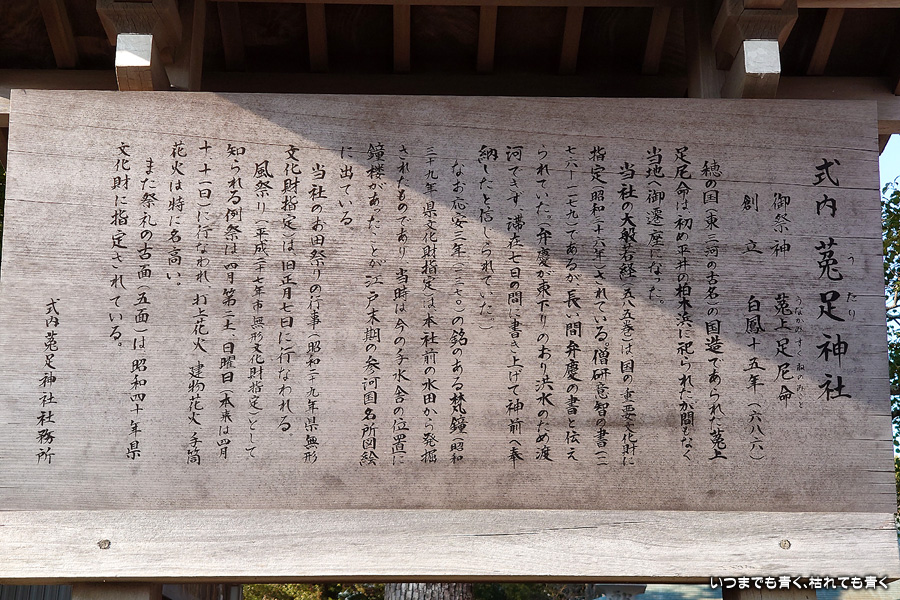 式内 菟足神社
うたり
御祭神 菟上足尼命
うなかみすくねのみこと
創立 白鳳十五年(六八六)
穂の国(東三河の古名)の国造であられた菟上
足尼命は初め平井の柏木浜に祀られたが間もなく
当地へ御遷座になった。
当社の大般若経(五八五巻)は国の重要文化財に
指定(昭和三十六年)されている。僧研意智の書(一一
七六―一一七九)であるが、長い間弁慶の書と伝え
られていた。弁慶が東下りのおり洪水のため渡
河できず、滞在七日の間に書き上げて神前へ奉
納したと信じられていた。
なお応安三年(一三七〇)の銘のある梵鐘(昭和
三十九年県文化財指定)は、本社前の水田から発掘
されたものであり、当時は今の手水舎の位置に
鐘楼があったことが江戸末期の参河国名所図絵
に出ている
当社のお田祭りの行事(昭和二十九年県無形
文化財指定)は、旧正月七日に行なわれる。
風祭り(平成二十七年市無形文化財指定)として
知られる例祭は四月第二土、日曜日(本来は四月
十、十一日)に行なわれ、打上花火、建物花火、手筒
花火は特に名高い。
また祭礼の古面(五面)は昭和四十年県
文化財に指定されている。
式内菟足神社社務所
いつまでも青く、枯れても青く